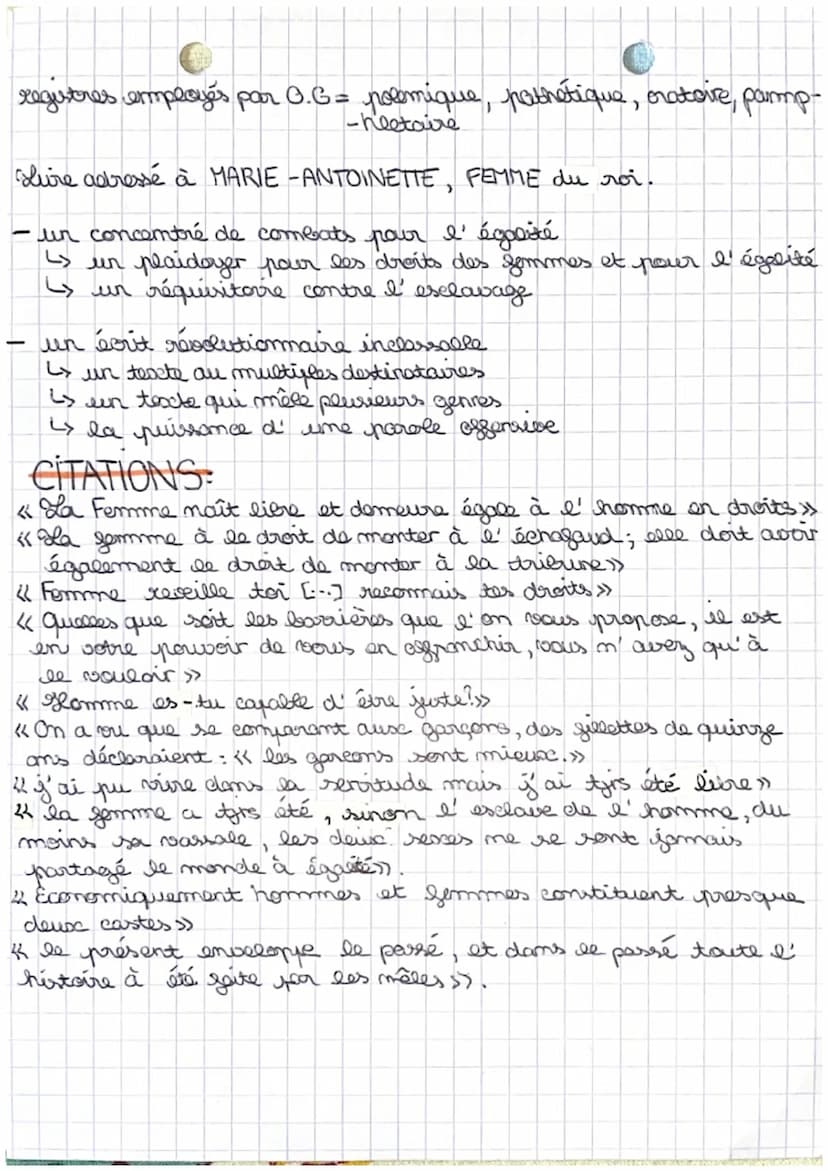 registres employés par O.G = polémique, pathétique, oratoire, pamp-
-hlétaire
Livre adressé à MARIE-ANTOINETTE, FEMME du roi.
- un concentré de combats pour l'égalité
↳ un plaidoyer pour les droits des femmes et pour l'égalité
↳ un réquisitoire contre l'esclavage
- un écrit révolutionnaire inclassable
↳ un texte au multiples destinataires
↳ un texte qui mêle plusieurs genres
↳ la puissance d'une parole offensive
CITATIONS:
« La Femme naît libre et demeure égale à l'homme en droits »
« la femme à le droit de monter à l'échafaud; elle doit avoir
également le droit de monter à la tribune »
« Femme reveille toi [...] reconnais tes droits »
« Quelles que soit les barrières que l'on vous propose, il est
en votre pouvoir de vous en affranchir, vous n'avez qu'à
le vouloir »
« Homme es-tu capable d'être juste? »
« On a vu que se comparant aux garçons, des fillettes de quinze
ans déclaraient : « les garcons sont mieux. »
« j'ai pu vivre dans la servitude mais j'ai tjrs été libre »
« la femme a tjrs été, sinon l'esclave de l'homme, du
moins sa vassale, les deux sexes ne se sont jamais
partagé le monde à égalité ».
« Économiquement hommes et femmes constituent presque
deux castes »
« le présent enveloppe le passé, et dans le passé toute l'
histoire à été faite par les mâles ».